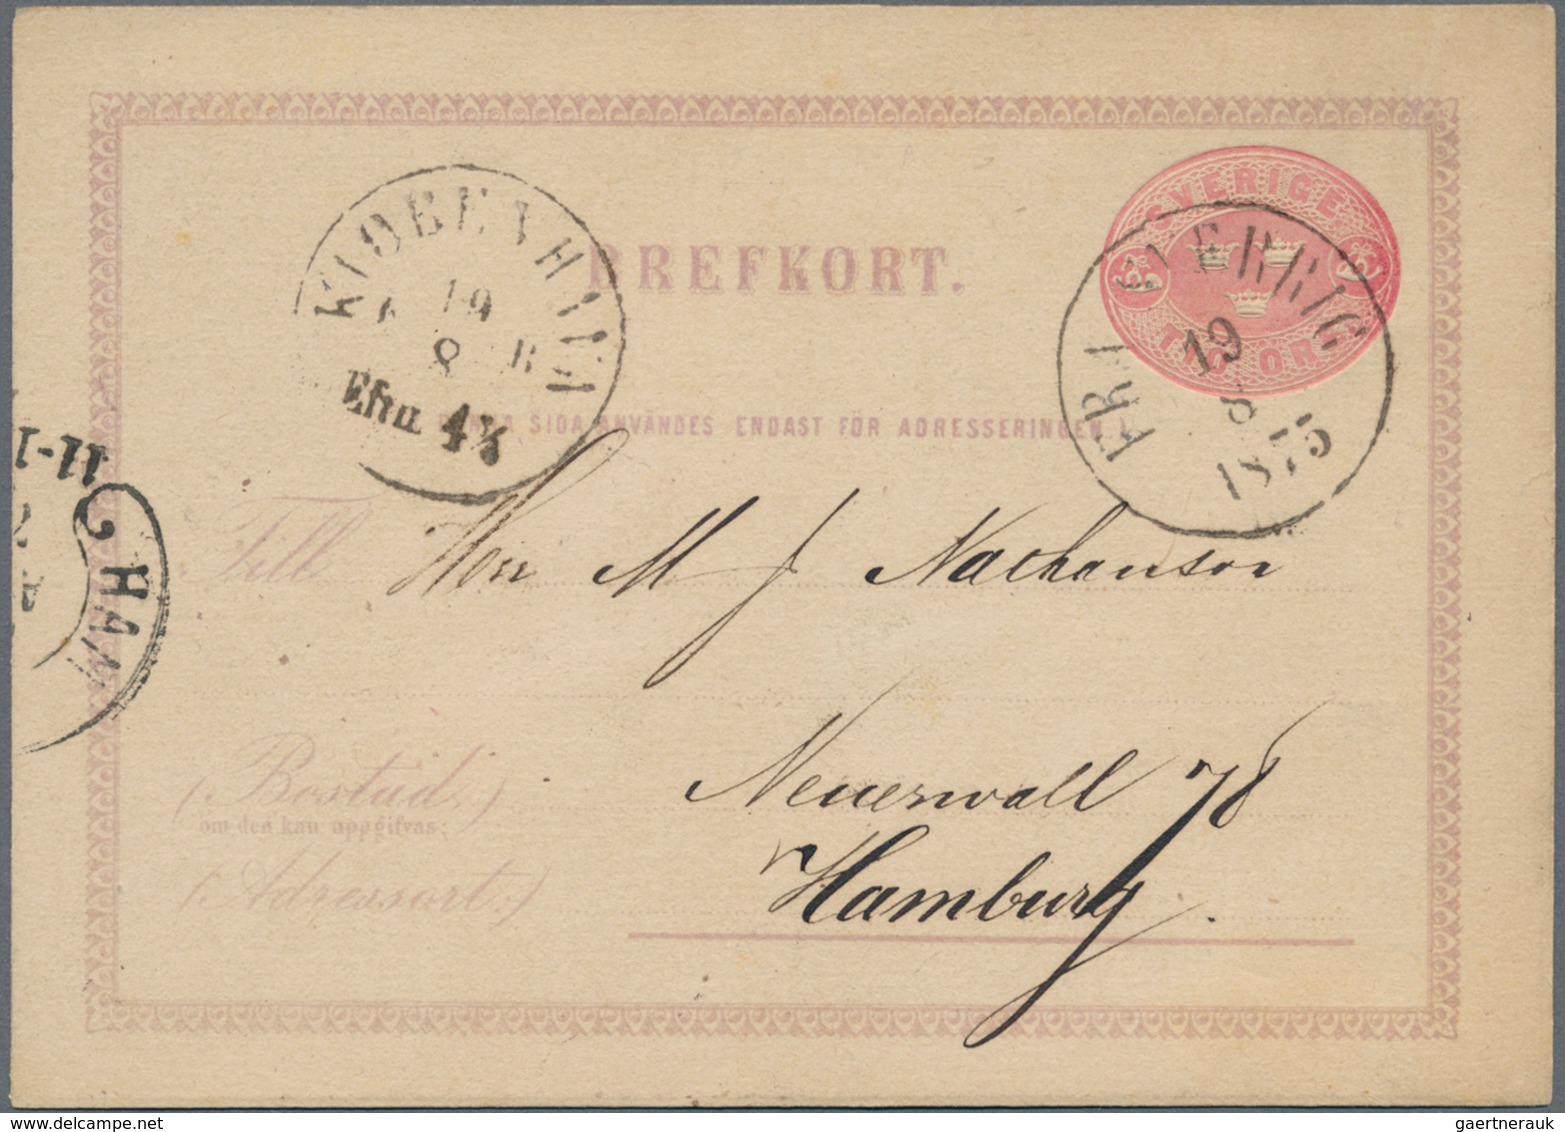 SVERIGE
TIO ÖRE
FRA SVERRIG
19
8
1875
KIØBENHAVN
19
8
Eftm. 4½
BREFKORT.
DENNA SIDA ANVÄNDES ENDAST FÖR ADRESSERINGEN.
11-1
HAM
Till Herr M J Nathanson
(Bostad,)
om den kan uppgifvas;
Neuerwall 78
(Adressort:)
Hamburg.
gaertnerauk